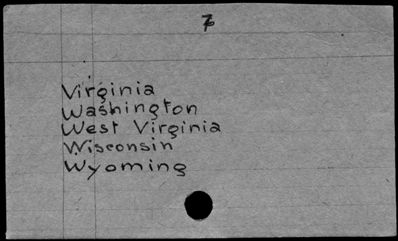 7
Virginia
Washington
West Virginia
Wisconsin
Wyoming